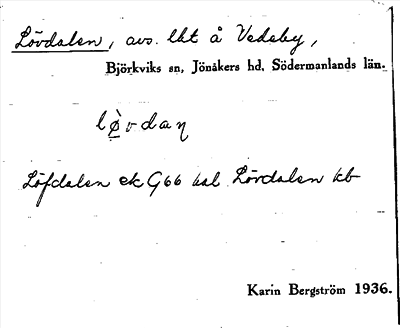 Lövdalen, avs. lht å Vedeby,
Björkviks sn, Jönåkers hd, Södermanlands län.
Löfdalen ek G66 bal Lövdalen kb
Karin Bergström 1936.